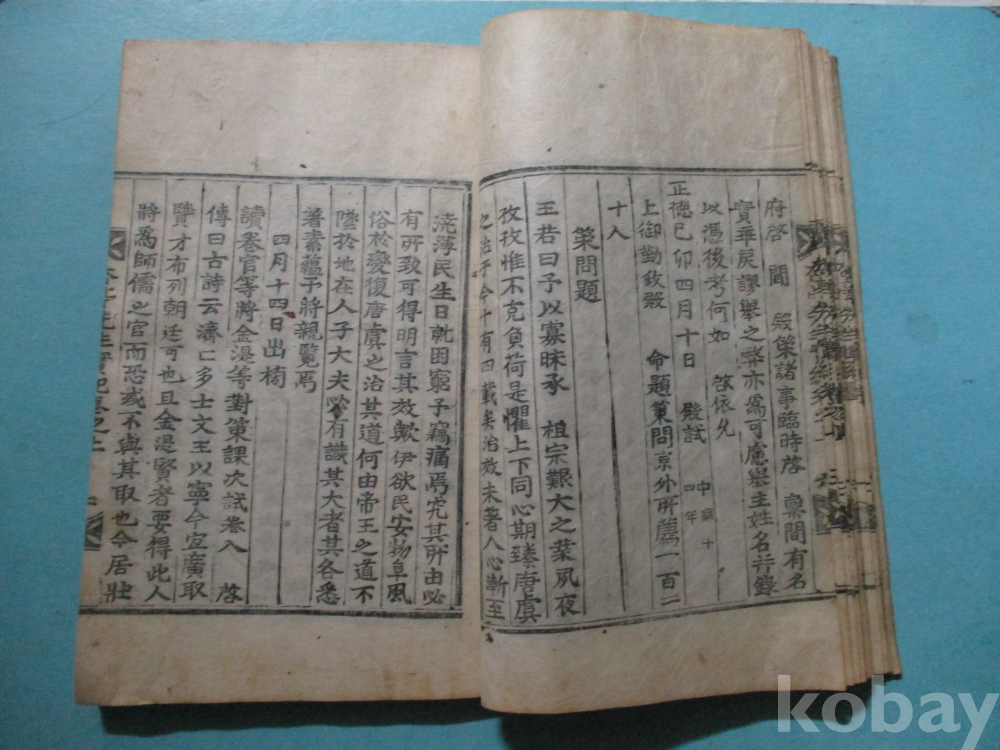 府啓 聞 殿策諸事臨時啓 稟間有名
實華戾謬擧之弊亦爲可慮擧主姓名幷錄
以憑後考何如 啓依允
正德己卯四月十日 殿試 中廟十四年
上御勤政殿 命題策問京外所薦一百二
十人
策問題
王若曰予以寡昧承 祖宗艱大之業夙夜
孜孜惟不克負荷是懼上下同心期臻唐虞
之治于今十有四載矣治效未著人心漸至
澆薄民生日就困窮予竊痛焉究其所由必
有所致可得明言其效歟伊欲民安物阜風
俗於變復唐虞之治其道何由帝王之道不
墜於地在人子大夫必有識其大者其各悉
著素蘊予將親覽焉
四月十四日出榜
讀卷官等將金湜等對策課次試卷入 啓
傳曰古詩云濟〻多士文王以寧今宜廣取
賢才布列朝廷可也且金湜賢者要得此人
將爲師儒之官而恐或不與其取也今居壯
kobay